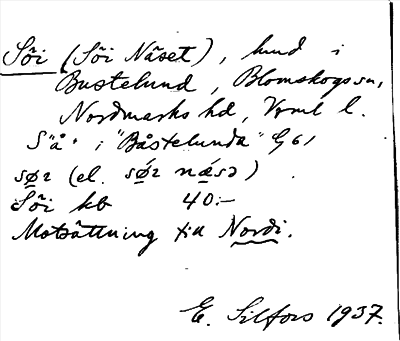 Söi (Söi Näset), lund i
Bustelund, Blomskogs sn,
Nordmarks hd, Vrml l.
S"å" i "Båstelunda" G61
Söi kb 40:-
Motsättning till Nordi.
E. Silfors 1937.